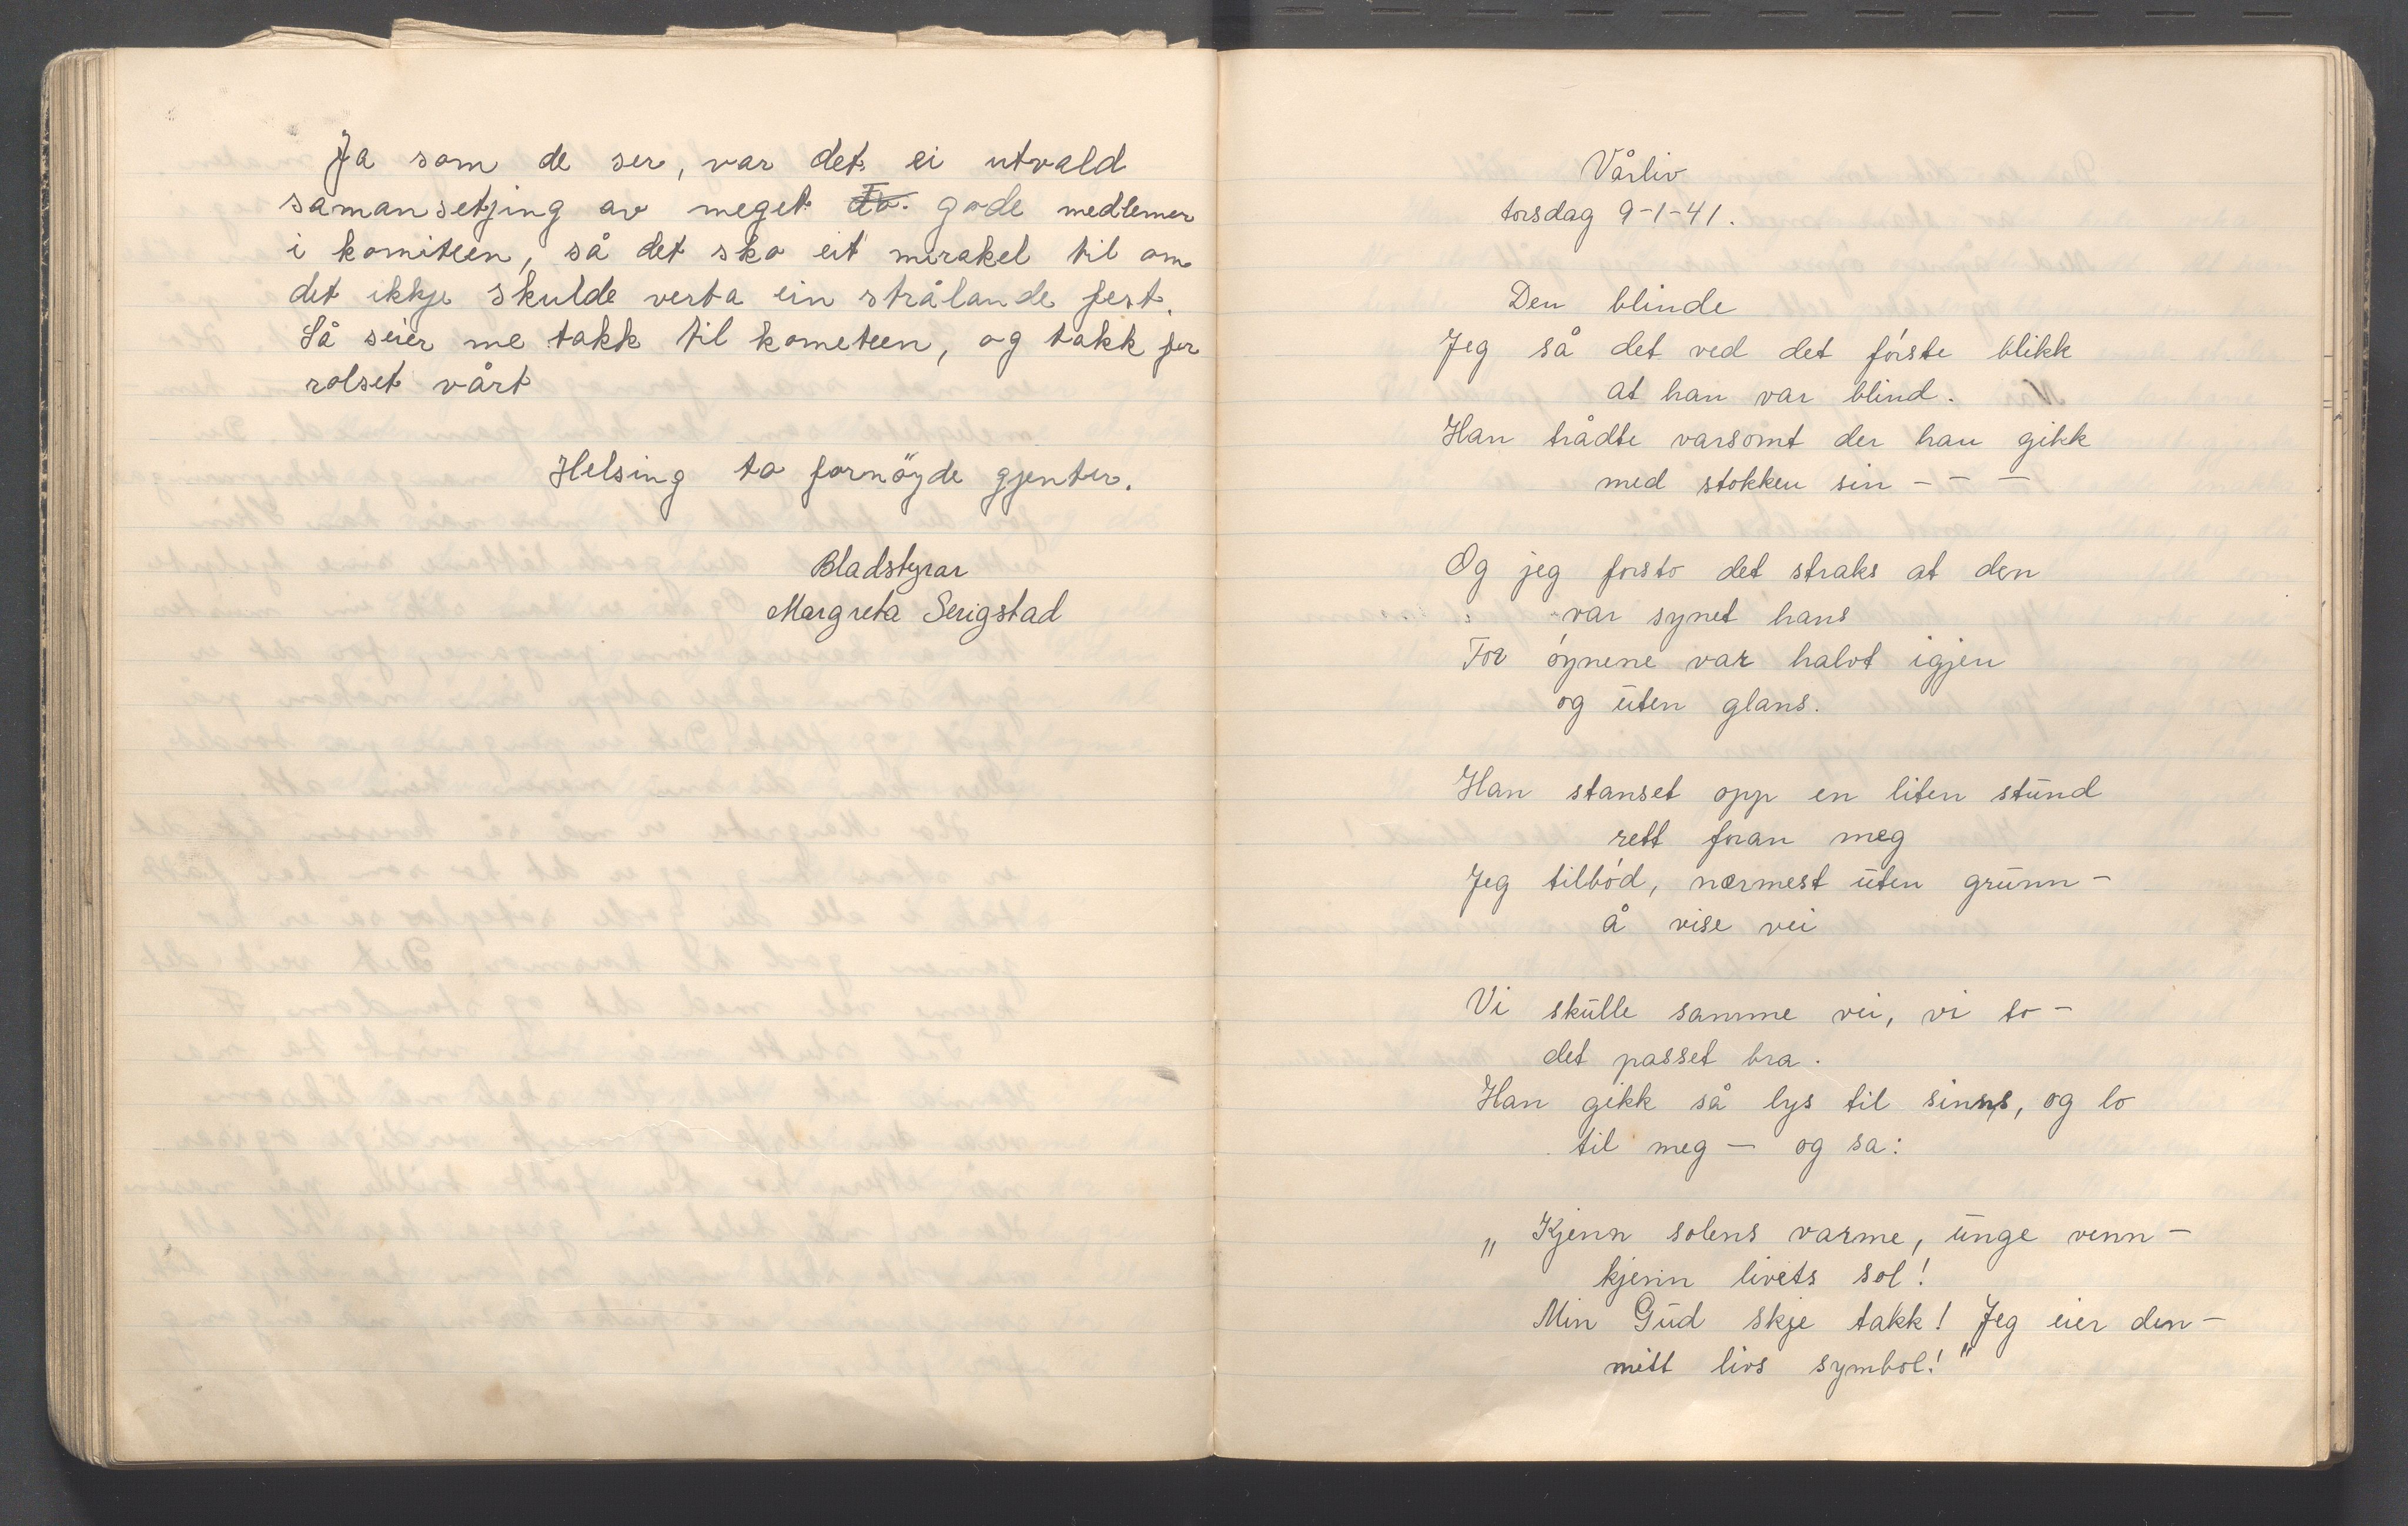 Ja som de ser, var det ei utvald
samansetjing av meget gode medlemer
i komiteen, så det ska eit mirakel til om
det ikkje skulde verta ein strålande fest.
Så seier me takk til kometeen, og takk for
rolset vårt
Helsing to fornöyde gjenter.
Bladstyrar
Margreta Serigstad
Vårliv
torsdag 9-1-41.
Den blinde
Jeg så det ved det fórste blikk
at han var blind.
Han trådte varsomt der han gikk
med stokken sin - - -
Og jeg forsto det straks at den
var synet hans
For óynene var halvt igjen
og uten glans.
Han stanset opp en liten stund
rett foran meg
Jeg tilbód, nærmest uten grunn -
å vise vei
Vi skulle samme vei, vi to -
det passet bra.
Han gikk så lys til sinns, og lo
til meg - og sa:
„ Kjenn solens varme, unge venn -
kjenn livets sol!
Min Gud skje takk! Jeg eier den -
mitt livs symbol!"